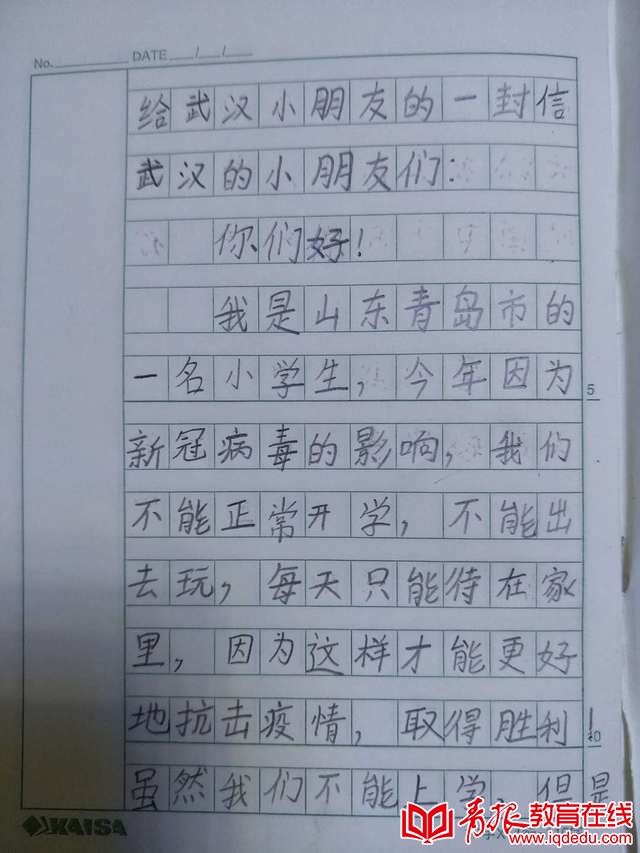 No. DATE / /
给武汉小朋友的一封信
武汉的小朋友们:
你们好!
我是山东青岛市的
一名小学生,今年因为
5
新冠病毒的影响,我们
不能正常开学,不能出
去玩,每天只能待在家
里,因为这样才能更好
地抗击疫情,取得胜利!
虽然我们不能上学,但是
KAISA
青报教育在线
www.iqdedu.com